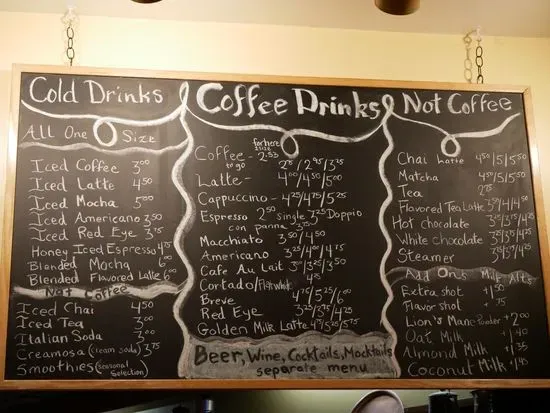 Cold Drinks
All One Size
Iced Coffee 3.00
Iced Latte 4.50
Iced Mocha 5.00
Iced Americano 3.50
Iced Red Eye 3.75
Honey Iced Espresso 4.75
Blended Mocha 6.00
Blended Flavored Latte 6.00
Not Coffee
Iced Chai 4.50
Iced Tea 3.00
Italian Soda 3.00
Creamosa (cream soda) 3.75
Smoothies (seasonal selection)
Coffee Drinks
for here
Coffee - 2.53
to go
Latte - 4.00/4.50/5.00
Cappuccino - 4.25/4.75/5.25
Espresso 2.50 Single 3.25 Doppio
con panna 3.75
Macchiato 3.50/4.50
Americano 3.25/4.00/4.75
Cafe Au Lait 3.00/3.25/3.50
Cortado/Flatwhite 4.25
Breve 4.75/5.25/6.00
Red Eye
Golden Milk Latte
Beer, Wine, Cocktails, Mocktails
separate menu
Not Coffee
Chai Latte 4.50/5/5.50
Matcha 4.50/5/5.50
Tea
Flavored Tea Latte
Hot Chocolate
White chocolate
Steamer
Add Ons Milk Alts
Extra shot +.50
Flavor shot +.75
Lion's Mane Powder +2.00
Oat Milk
Almond Milk +.35
Coconut Milk +.35